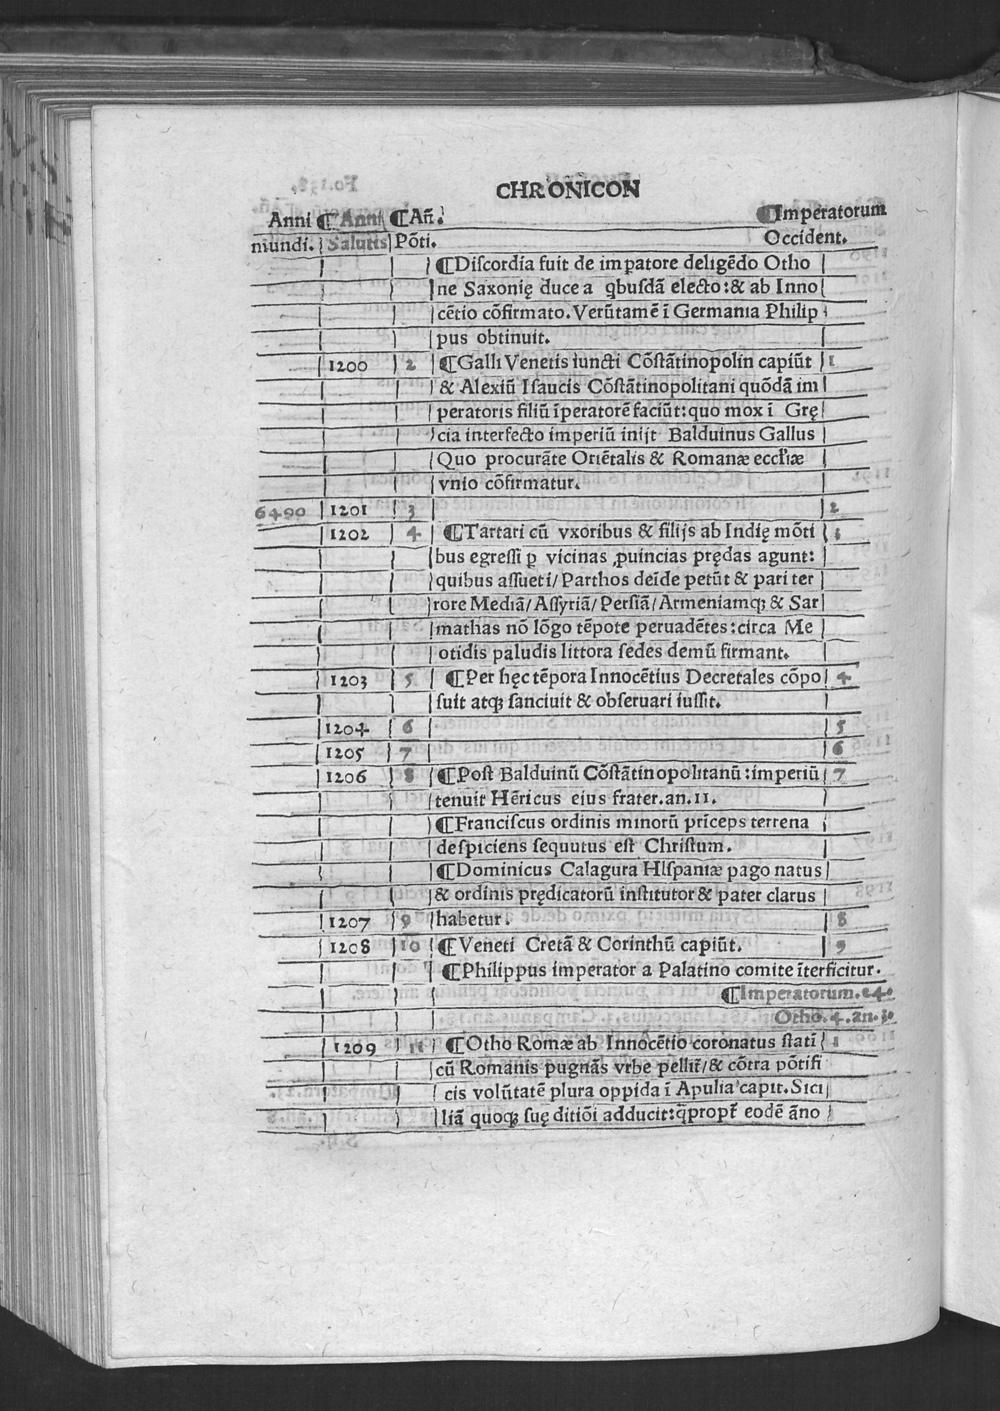 CHRONICON
Anni ¶Anni ¶Añ. ¶Imperatorum
mundi. Salutis Põti. Occident.
¶Discordia fuit de impatore deligẽdo Otho
ne Saxonię duce a qbusdã electo:& ab Inno
cẽtio cõfirmato. Verũtamẽ ĩ Germania Philip
pus obtinuit.
1200 2 ¶Galli Venetis iuncti Cõstãtinopolin capiũt 1
& Alexiũ Isaucis Cõstãtinopolitani quõdã im
peratoris filiũ ĩperatorẽ faciũt:quo mox ĩ Grę
cia interfecto imperiũ inijt Balduinus Gallus
Quo procurãte Oriẽtalis & Romanæ eccl'iæ
vnio cõfirmatur.
6490 1201 3 2
1202 4 ¶Tartari cũ vxoribus & filijs ab Indię mõti 3
bus egressi ꝑ vicinas ꝓuincias prędas agunt:
quibus assueti/ Parthos deĩde petũt & pari ter
rore Mediã/ Assyriã/ Persiã/ Armeniamqꝫ & Sar
mathas nõ lõgo tẽpote peruadẽtes:circa Me
otidis paludis littora sedes demũ firmant.
1203 5 ¶Per hęc tẽpora Innocẽtius Decretales cõpo 4
suit atqꝫ sanciuit & obseruari iussit.
1204 6 5
1205 7 6
1206 8 ¶Post Balduinũ Cõstãtinopolitanũ:imperiũ 7
tenuit Hẽricus eius frater.an.11.
¶Franciscus ordinis minorũ prĩceps terrena
despiciens sequutus est Christum.
¶Dominicus Calagura HIspaniæ pago natus
& ordinis prędicatorũ institutor & pater clarus
1207 9 habetur. 8
1208 10 ¶Veneti Cretã & Corinthũ capiũt. 9
¶Philippus imperator a Palatino comite ĩterficitur.
¶Imperatorum.24.
Otho.4.an.3.
1209 11 ¶Otho Romæ ab Innocẽtio coronatus stati 1
cũ Romanis pugnãs vrbe pellit᷑/ & cõtra põtifi
cis volũtatẽ plura oppida ĩ Apulia capit. Sici
liã quoqꝫ suę ditiõi adducit:q̃propt᷑ eodẽ ãno